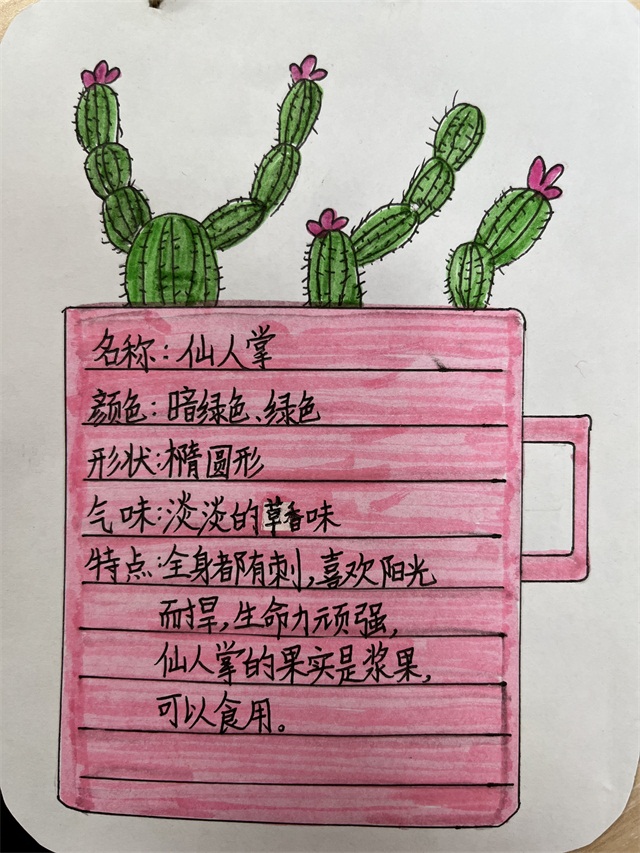 名称：仙人掌
颜色：暗绿色、绿色
形状：椭圆形
气味：淡淡的草香味
特点：全身都有刺，喜欢阳光
而旱，生命力顽强，
仙人掌的果实是浆果，
可以食用。